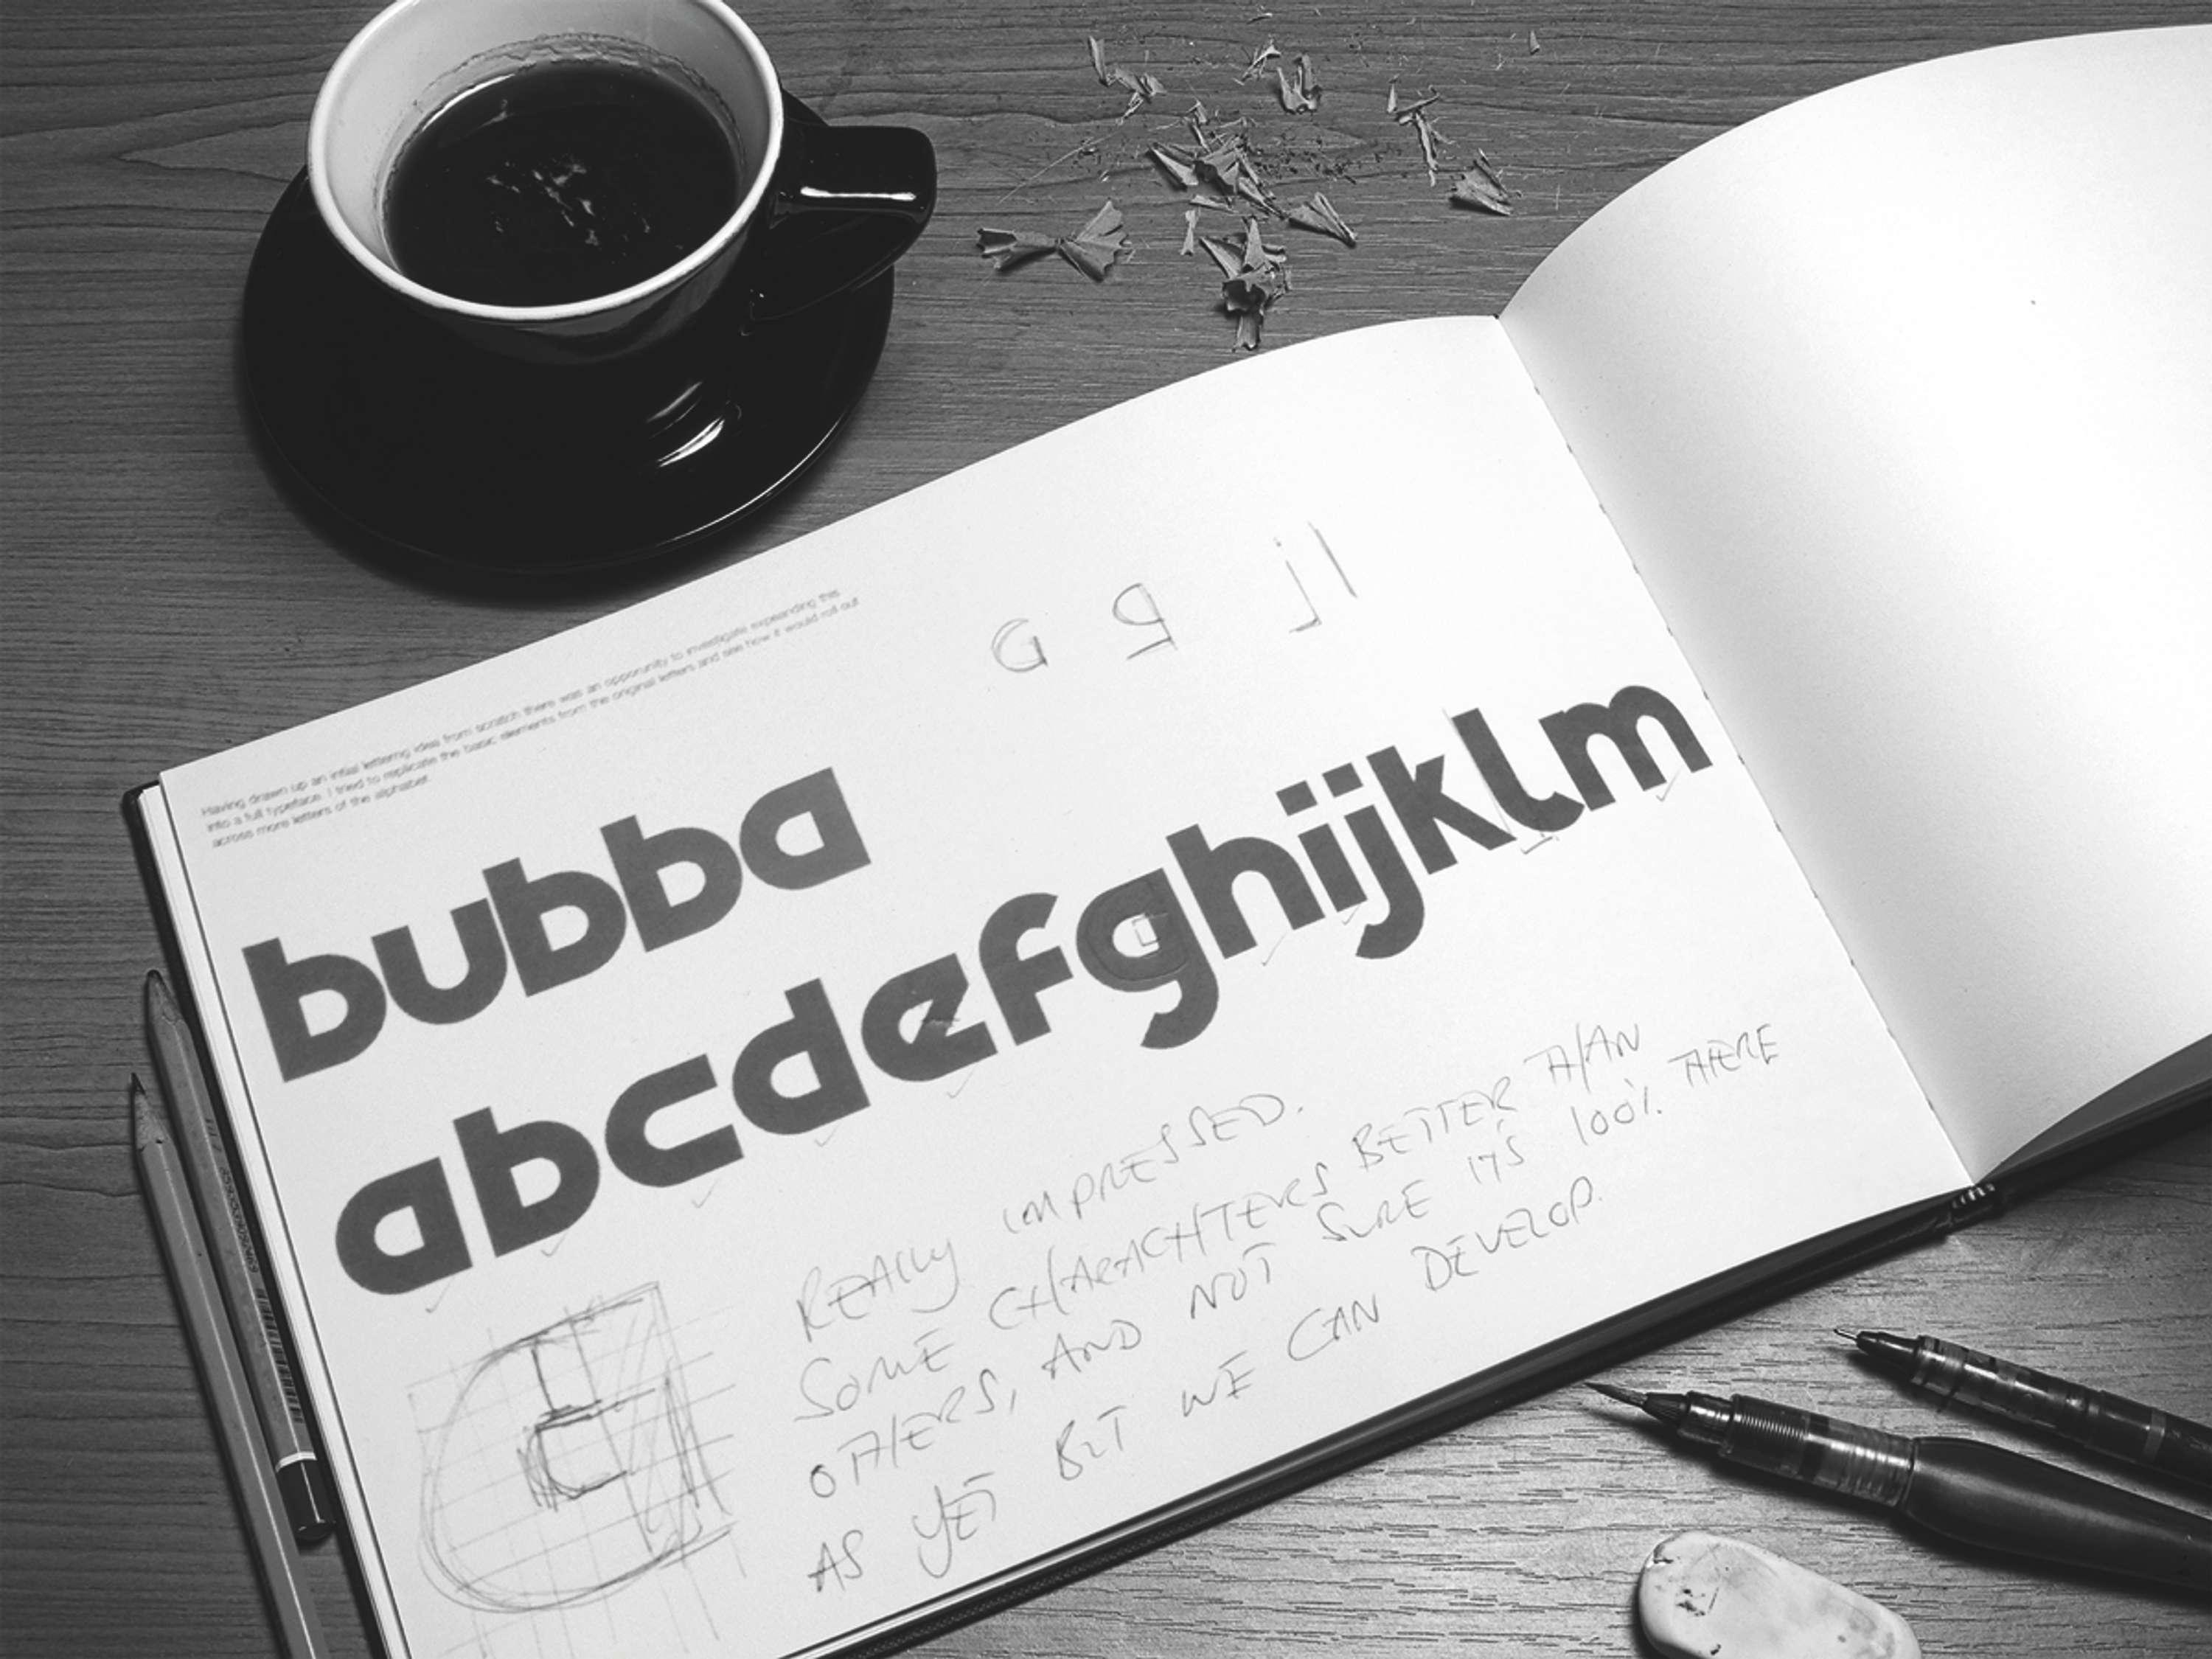 Having drawn up an intial letterng idea from scratch there was an opporunity to investigate expeanding this
into a full typeface. I tried to replicate the basic elements from the original letters and see how it would roll out
across more letters of the alphabet.
bubba
abcdefghijklm
REALLY IMPRESSED.
SOME CHARACHTERS BETTER THAN
OTHERS, AND NOT SURE IT'S 100% THERE
AS YET BUT WE CAN DEVELOP.